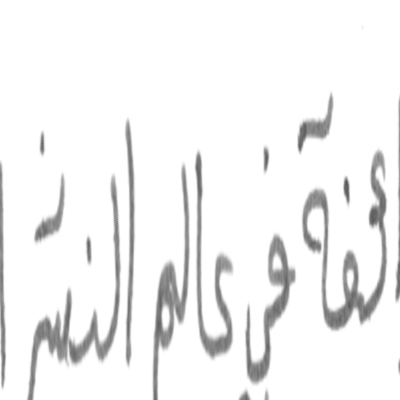 ئفة في عالم النشر